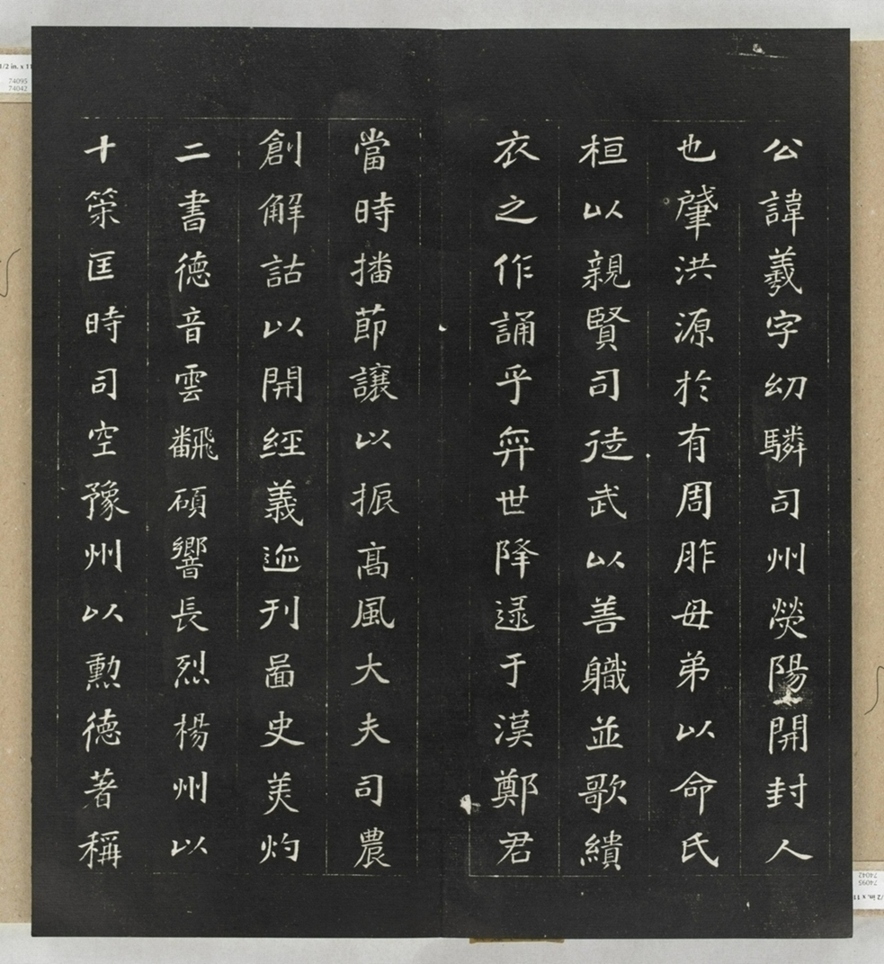 公諱羲字幼驎司州熒陽開封人
也肈洪源扵有周胙母弟以命氏
桓以親賢司徒武以善軄並歌繢
衣之作誦乎奕世降逯于漢鄭君
當時播節讓以振髙風大夫司農
創解詁以開經義迹刊啚史羙灼
二書德音雲飜碩響長烈楊州以
十策匡時司空豫州以勲徳著稱
1/2 in. x 11
74095
74042
74095
74042